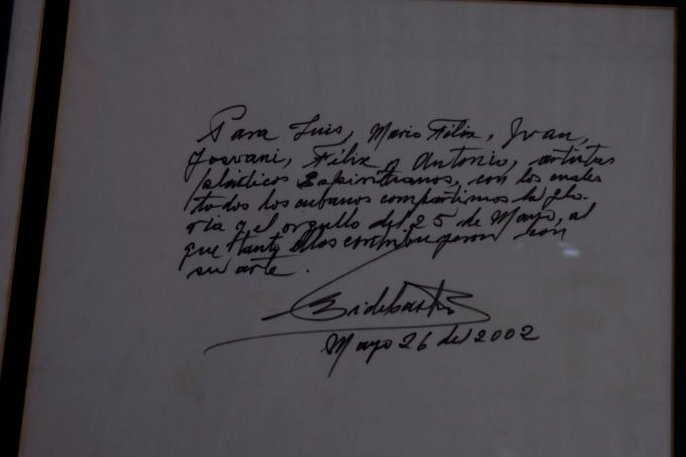 Para Luis, Mario Félix, Ivan,
Jovani, Félix y Antonio, artistas
plásticos Espirituanos, con los cuales
todos los cubanos compartimos la glo-
ria y el orgullo del 25 de Mayo, al
que tanto ellos contribuyeron con
su arte.
Fidel Castro
Mayo 26 de 2002